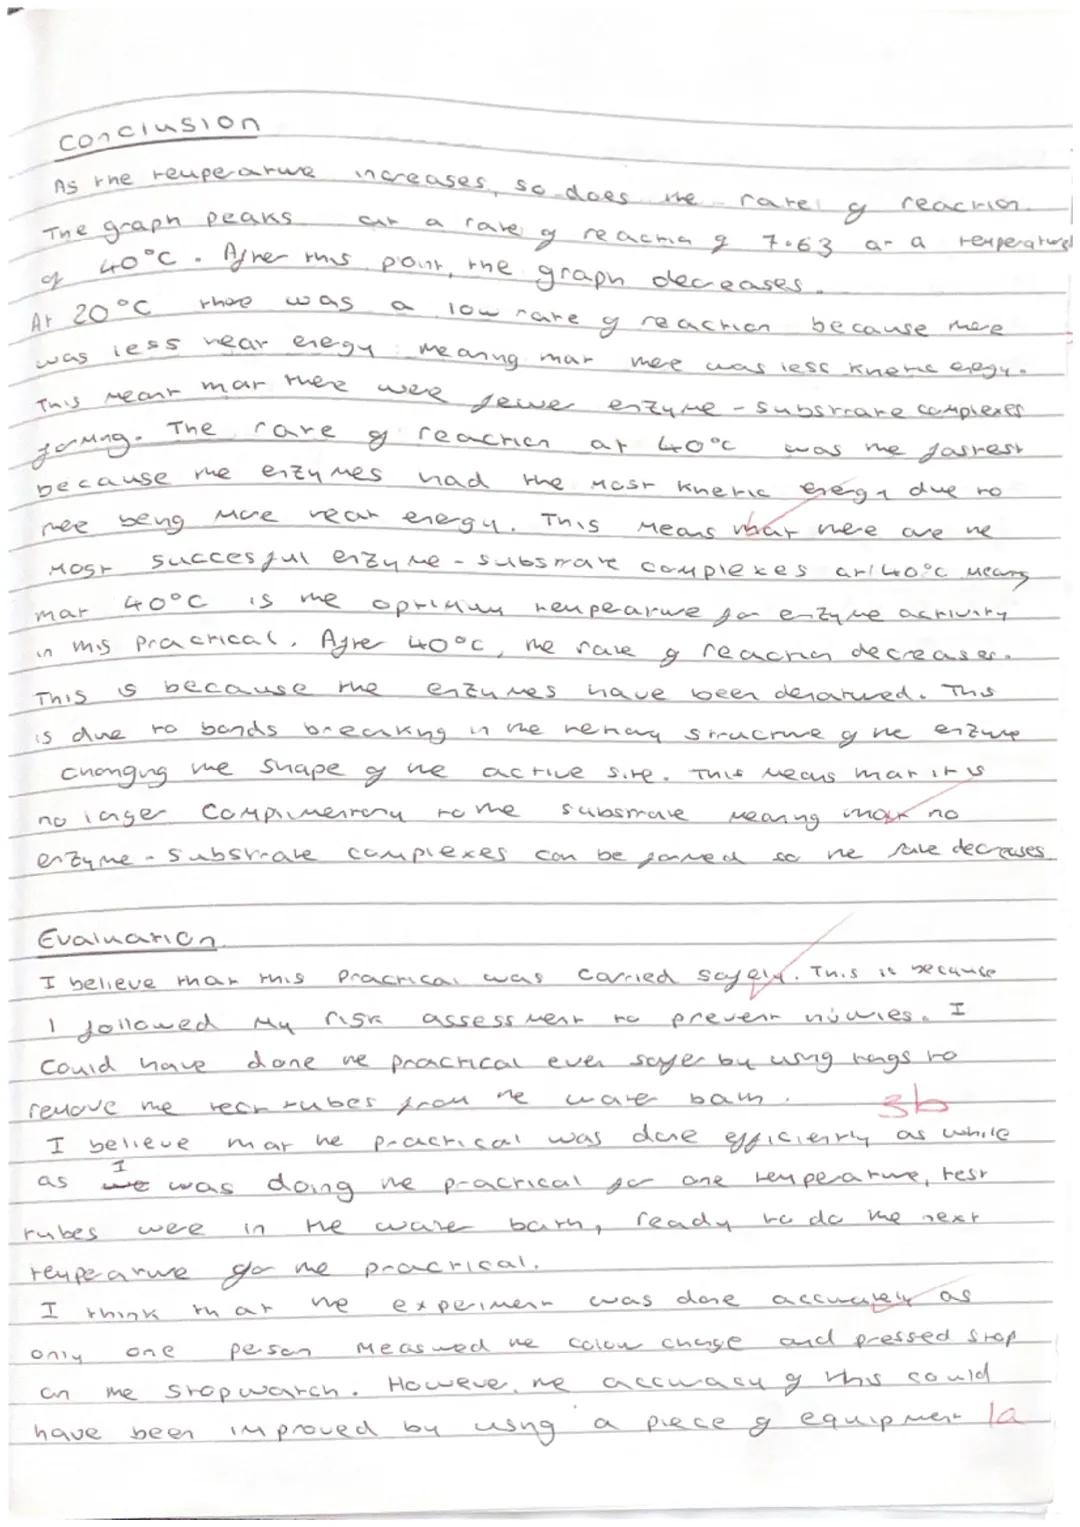 Conclusion
As the temperature increases, so does the rate of reaction.
The graph peaks at a rate of reaction of 7.63 at a temperature
of 40°C. After this point, the graph decreases.
At 20°C there was a low rate of reaction because there
was less heat energy meaning that there was less kinetic energy.
This meant that there were fewer enzyme-substrate complexes
forming. The rate of reaction at 40°C was the fastest
because the enzymes had the most kinetic energy due to
there being more heat energy. This means that there are the
most succesful enzyme-substrate complexes at 40°C means
that 40°C is the optimum temperature for enzyme activity
in this practical. After 40°C, the rate of reaction decreases.
This is because the enzymes have been denatured. This
is due to bonds breaking in the tertiary structure of the enzyme
changing the shape of the active site. This means that it is
no longer complimentary to the substrate meaning that no
enzyme-substrate complexes can be formed so the rate decreases.
Evaluation
I believe that this practical was carried safely. This is because
I followed my risk assessment to prevent injuries. I
could have done the practical even safer by using tongs to
remove the test tubes from the water bath.
3b
I believe that the practical was done efficiently as while
as I was doing the practical for one temperature, test
tubes were in the water bath, ready to do the next
temperature for the practical.
I think that the experiment was done accurately as
only one person measured the colour change and pressed stop
on the stopwatch. However, the accuracy of this could
have been improved by using a piece of equipment 1a